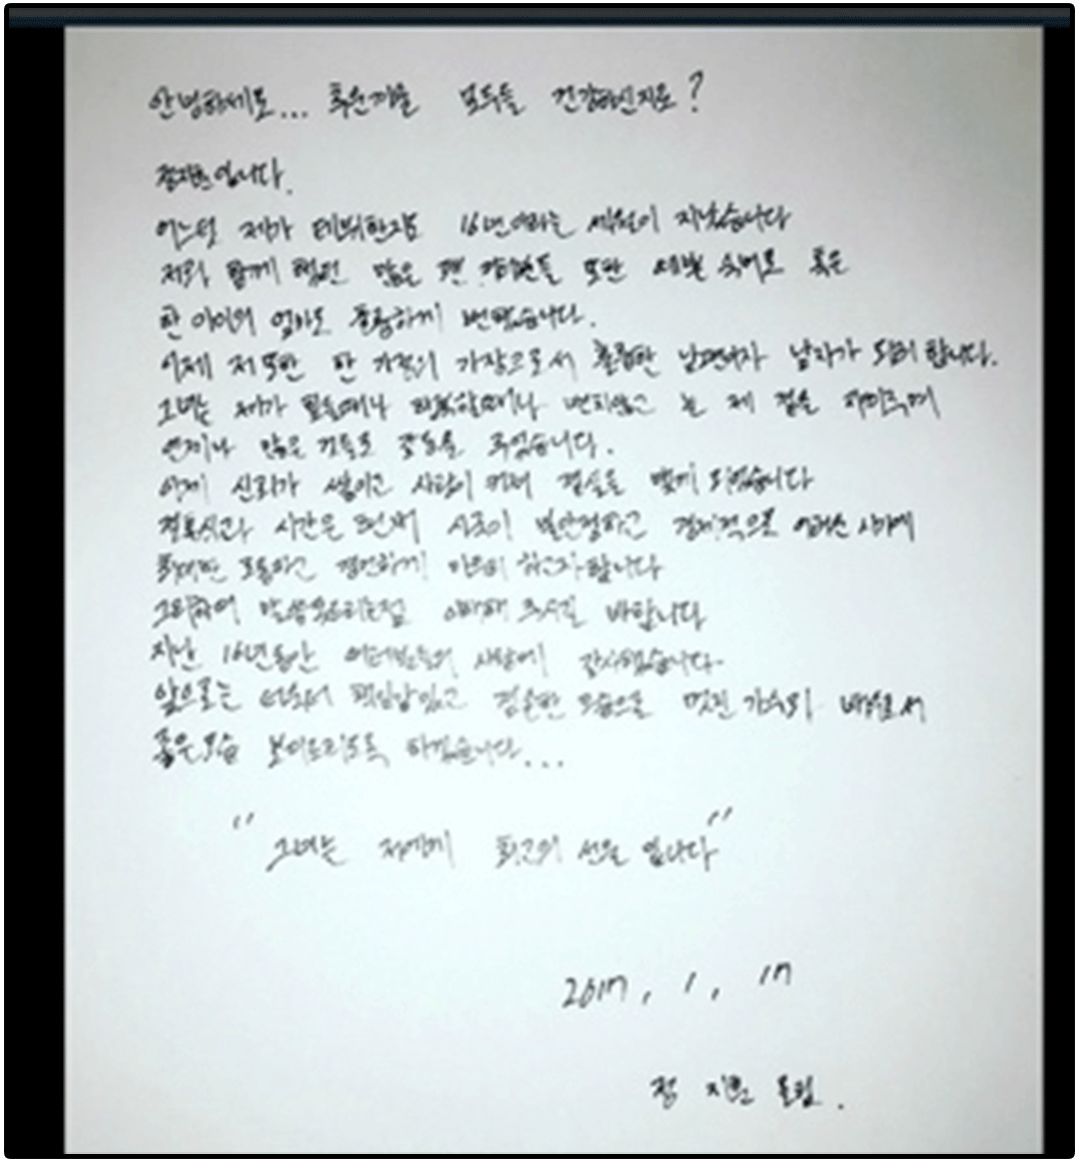 안녕하세요... 추운겨울 모두들 건강하신지요?
정지훈입니다.
어느덧 제가 데뷔한지도 16년이라는 세월이 지났습니다
저와 함께 했던 많은 팬 여러분들 또한 세월 속에서 혹은
한 아이의 엄마로 훌륭하게 변했습니다.
이제 저 또한 한 가정의 가장으로서 훌륭한 남편이자 남자가 되려 합니다.
그녀는 제가 힘들때나 행복할때나 변치않고 늘 제 곁을 지켜주며
언제나 많은 것들로 감동을 주었습니다.
이제 신뢰가 쌓이고 사랑이 커져 결실을 맺게 되었습니다
결혼식과 시간은 현재 시국이 불안정하고 경제적으로 어려운 시기에
최대한 조용하고 경건하게 마무리 하고자합니다
그리하여 말씀못드리는점 이해해 주시길 바랍니다
지난 16년동안 여러분들의 사랑에 감사했습니다.
앞으로는 책임감있고 겸손한 모습으로 멋진 가수와 배우로서
좋은모습 보여드리도록 하겠습니다...
"그녀는 저에게 최고의 선물 입니다"
2017. 1. 17
정 지훈 올림.